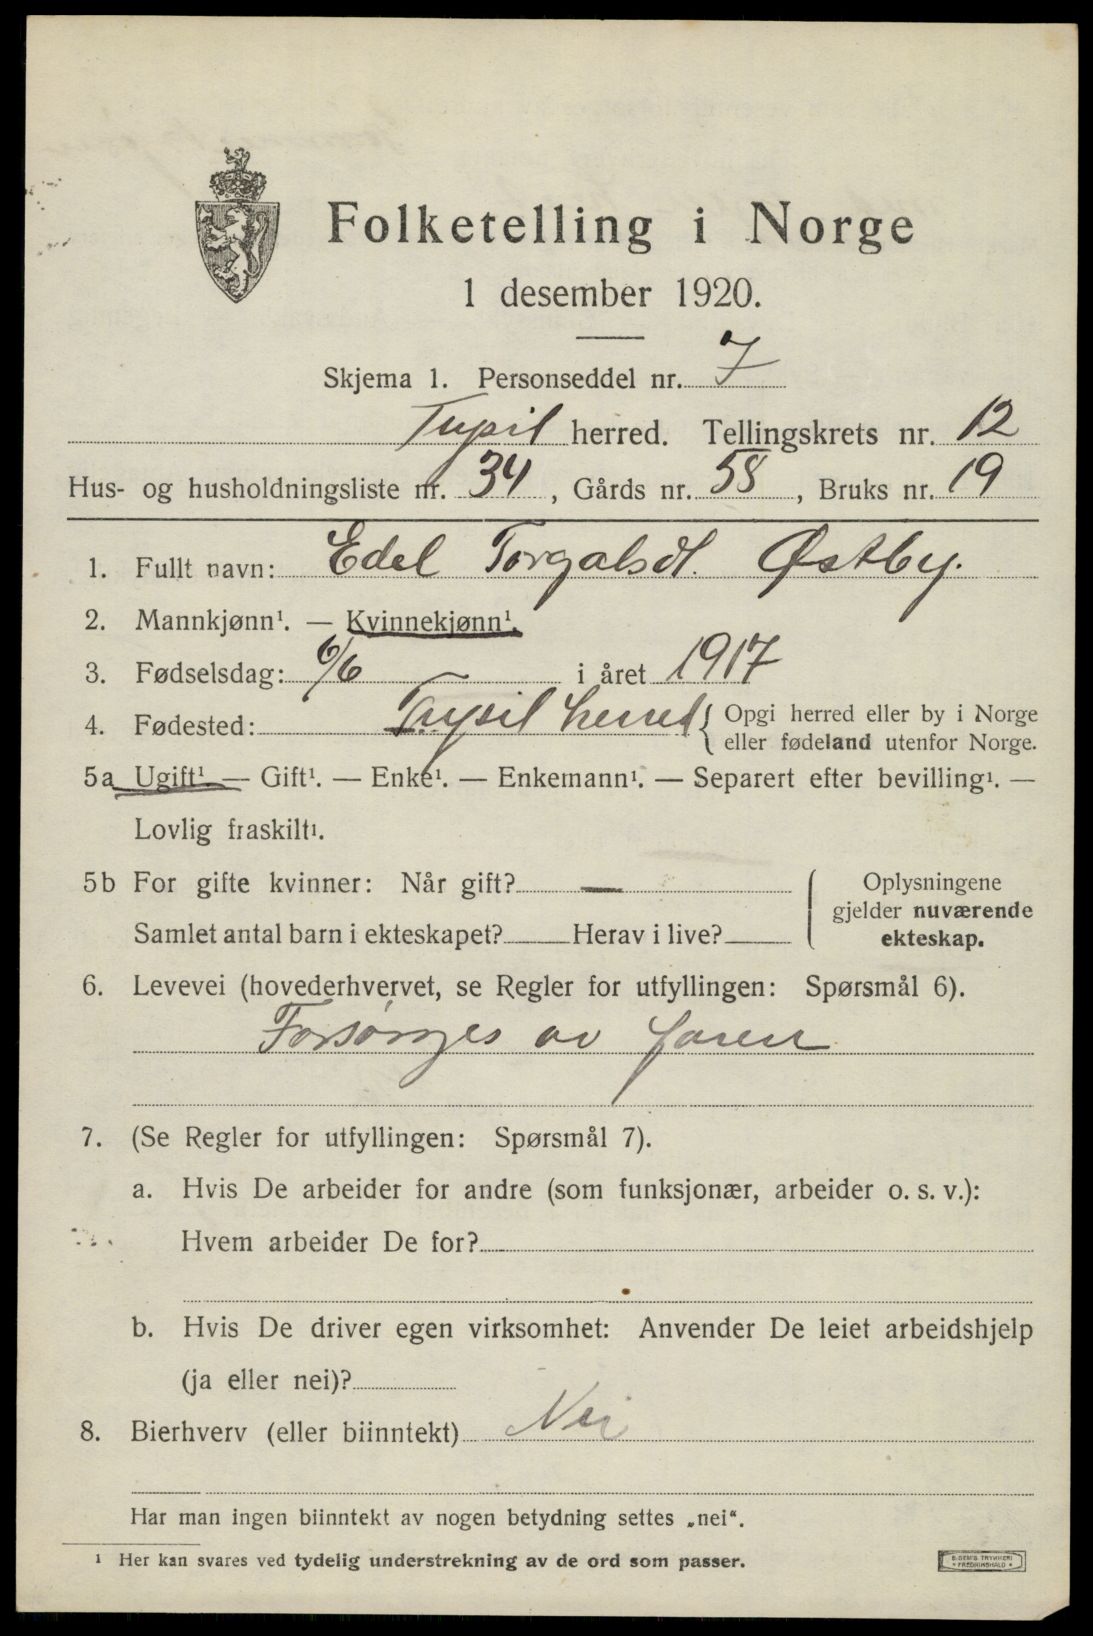 Folketelling i Norge
1 desember 1920.
Skjema 1. Personseddel nr. 7
Trysil herred. Tellingskrets nr. 12
Hus- og husholdningsliste nr. 34, Gårds nr. 58, Bruks nr. 19
1. Fullt navn: Edel Torgalsdt. Østby.
2. Mannkjønn¹. — Kvinnekjønn¹.
3. Fødselsdag: 6/6 i året 1917
4. Fødested: Trysil herred { Opgi herred eller by i Norge
eller fødeland utenfor Norge.
5a Ugift¹. — Gift¹. — Enke¹. — Enkemann¹. — Separert efter bevilling¹. —
Lovlig fraskilt¹.
5b For gifte kvinner: Når gift? — ( Oplysningene
gjelder nuværende
Samlet antal barn i ekteskapet? Herav i live? ekteskap.
6. Levevei (hovederhvervet, se Regler for utfyllingen: Spørsmål 6).
Forsørges av faren
7. (Se Regler for utfyllingen: Spørsmål 7).
a. Hvis De arbeider for andre (som funksjonær, arbeider o. s. v.):
Hvem arbeider De for?
b. Hvis De driver egen virksomhet: Anvender De leiet arbeidshjelp
(ja eller nei)?
8. Bierhverv (eller biinntekt) Nei
Har man ingen biinntekt av nogen betydning settes „nei".
¹ Her kan svares ved tydelig understrekning av de ord som passer.